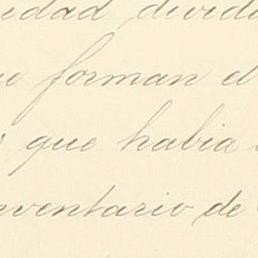 edad divid
forman el
que habia
nventario de